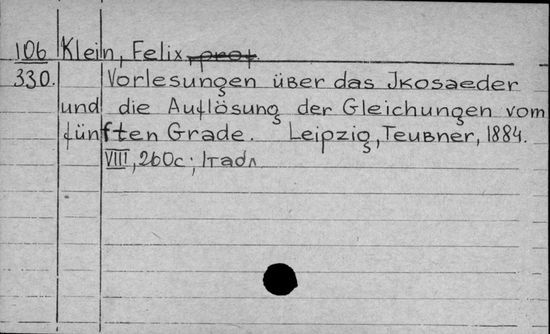 106 Klein, Felix prof
330. Vorlesungen über das Jkosaeder
und die Auflösung der Gleichungen vom
fünften Grade. Leipzig, Teubner, 1884.
VIII, 260c; 1табл